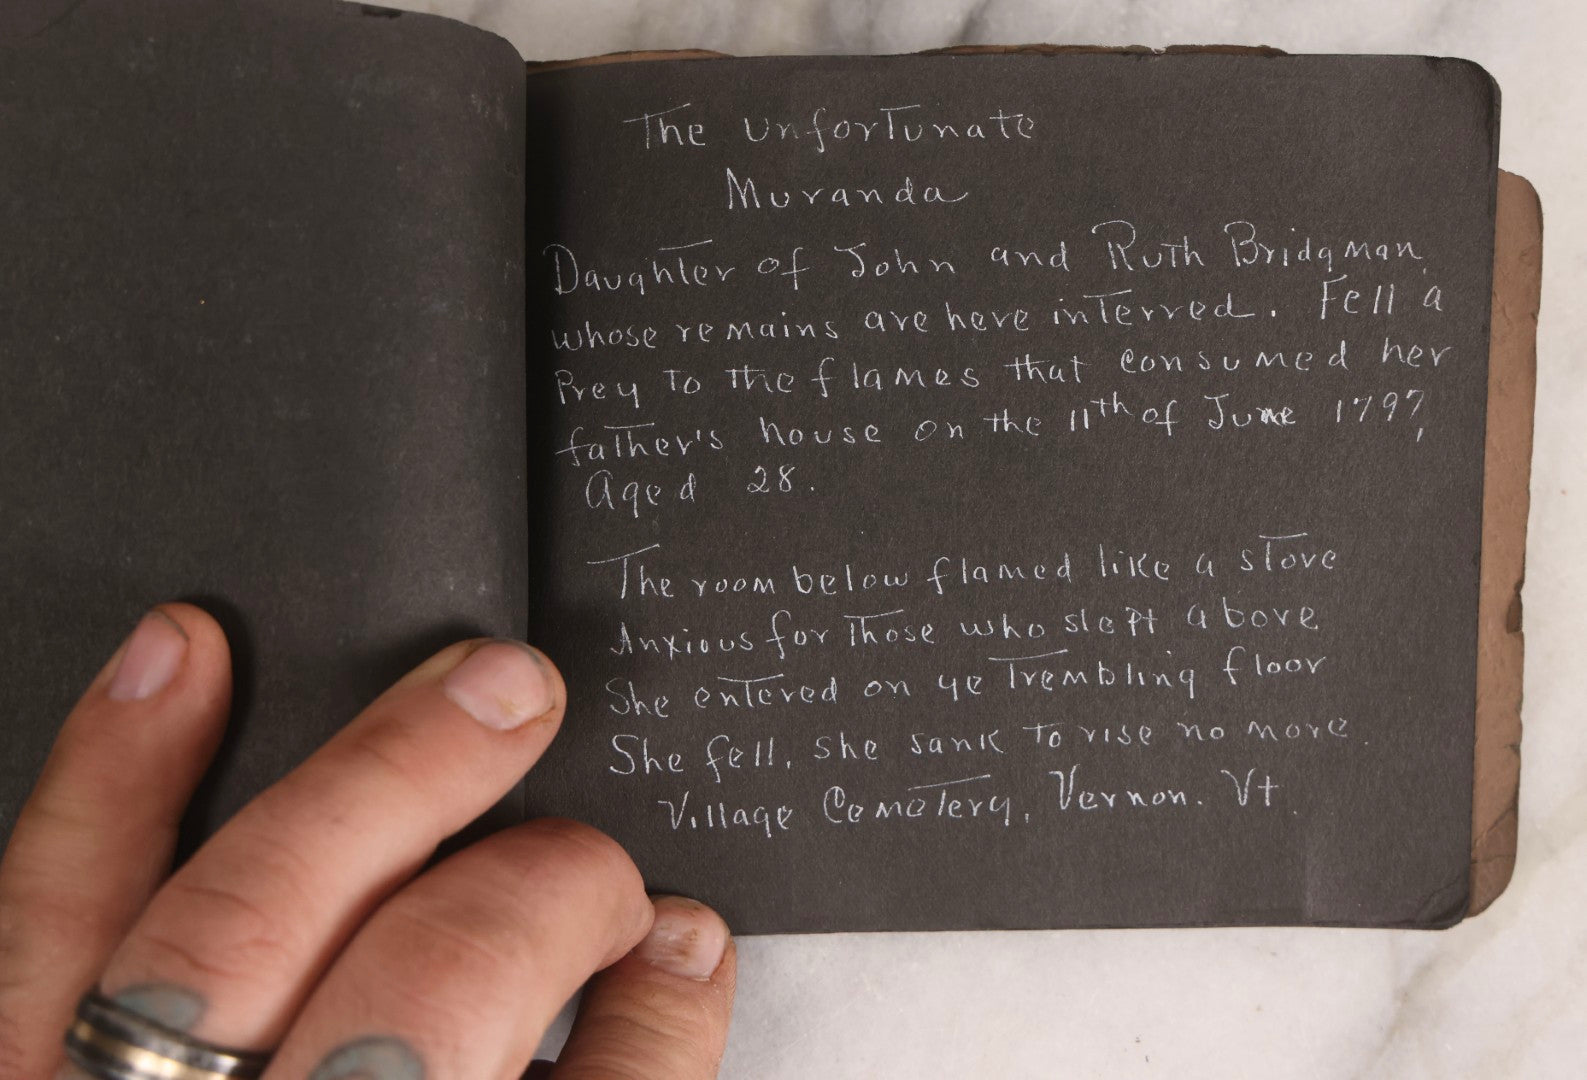 The unfortunate
Muranda
Daughter of John and Ruth Bridgman,
whose remains are here interred. Fell a
Prey to the flames that consumed her
father's house on the 11th of June 1797,
Aged 28.
The room below flamed like a stove
Anxious for Those who slept above
She entered on ye Trembling floor
She fell, she sank to rise no more.
Village Cemetery, Vernon. Vt.